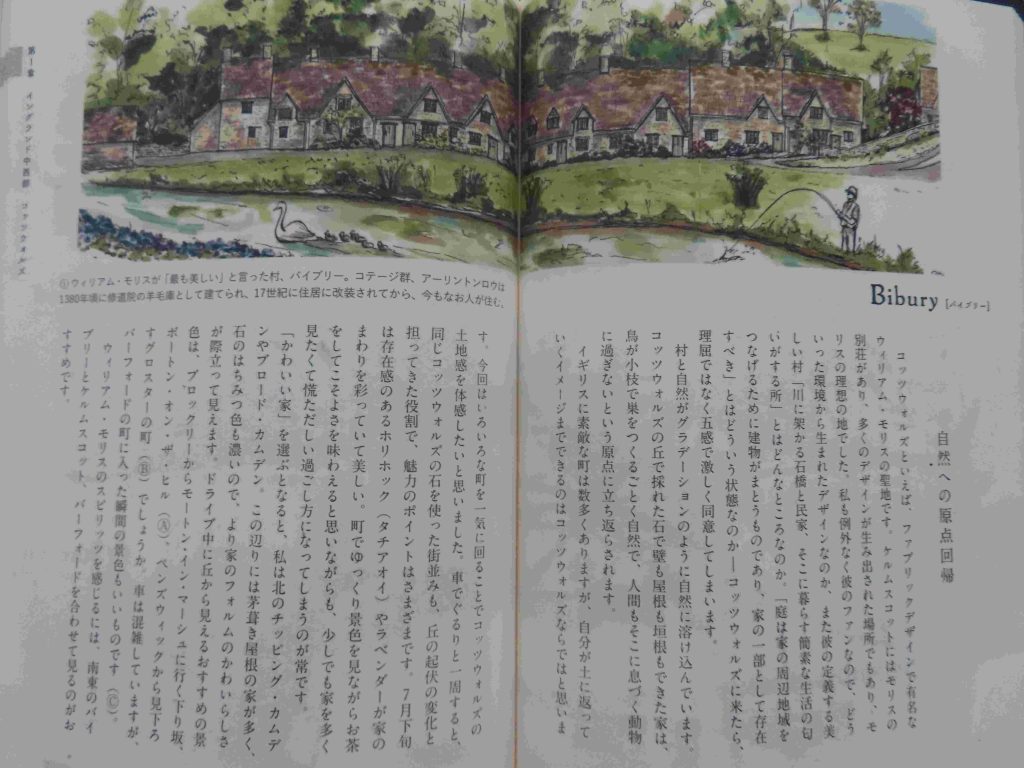 第1章 イングランド中西部 コッツウォルズ
①ウィリアム・モリスが「最も美しい」と言った村、バイブリー。コテージ群、アーリントンロウは
1380年頃に修道院の羊毛庫として建てられ、17世紀に住居に改装されてから、今もなお人が住む。
Bibury [バイブリー]
自然への原点回帰
コッツウォルズといえば、ファブリックデザインで有名な
ウィリアム・モリスの聖地です。ケルムスコットにはモリスの
別荘があり、多くのデザインが生み出された場所でもあり、モ
リスの理想の地でした。私も例外なく彼のファンなので、どう
いった環境から生まれたデザインなのか、また彼の定義する美
しい村「川に架かる石橋と民家、そこに暮らす簡素な生活の匂
いがする所」とはどんなところなのか。「庭は家の周辺地域を
つなげるために建物がまとうものであり、家の一部として存在
すべき」とはどういう状態なのか―コッツウォルズに来たら、
理屈ではなく五感で激しく同意してしまいます。
村と自然がグラデーションのように自然に溶け込んでいます。
コッツウォルズの丘で採れた石で壁も屋根も垣根もできた家は、
鳥が小枝で巣をつくるごとく自然で、人間もそこに息づく動物
に過ぎないという原点に立ち返らされます。
イギリスに素敵な町は数多くありますが、自分が土に返って
いくイメージまでできるのはコッツウォルズならではと思いま
す。今回はいろいろな町を一気に回ることでコッツウォルズの
土地感を体感したいと思いました。車でぐるりと一周すると、
同じコッツウォルズの石を使った街並みも、丘の起伏の変化と
担ってきた役割で、魅力のポイントはさまざまです。7月下旬
は存在感のあるホリホック（タチアオイ）やラベンダーが家の
まわりを彩っていて美しい。町でゆっくり景色を見ながらお茶
をしてこそよさを味わえると思いながらも、少しでも家を多く
見たくて慌ただしい過ごし方になってしまうのが常です。
「かわいい家」を選ぶとなると、私は北のチッピング・カムデ
ンやブロード・カムデン。この辺りには茅葺き屋根の家が多く、
石のはちみつ色も濃いので、より家のフォルムのかわいらしさ
が際立って見えます。ドライブ中に丘から見えるおすすめの景
色は、ブロックリーからモートン・イン・マーシュに行く下り坂、
ボートン・オン・ザ・ヒル（Ⓐ）、ペンズウィックから見下ろ
すグロスターの町（Ⓑ）でしょうか。車は混雑していますが、
バーフォードの町に入った瞬間の景色もいいものです（Ⓒ）。
ウィリアム・モリスのスピリッツを感じるには、南東のバイ
ブリーとケルムスコット、バーフォードを合わせて見るのがお
すすめです。